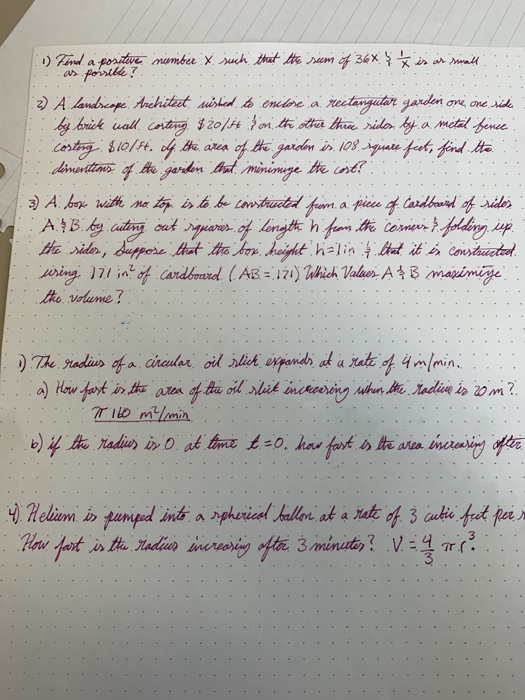 1) Find a positive number x such that the sum of 36x & 1/x is as small
as possible?
2) A landscape Architect wished to enclose a rectangular garden one one side
by brick wall costing $20/ft & on the other three sides by a metal fence
costing $10/ft. If the area of the garden is 108 square feet, find the
dimentions of the garden that minimize the cost?
3) A box with no top is to be constructed from a piece of Cardboard of sides
A & B by cuting out squares of length h from the corners & folding up
the sides, Suppose that the box height h=1in & that it is constructed
using 171 in² of cardboard (AB = 171) Which Values A & B maximize
the volume?
1) The radius of a circular oil slick expands at a rate of 4 m/min.
a) How fast is the area of the oil slick increasing when the radius is 20 m?
π 160 m²/min
b) if the radius is 0 at time t=0, how fast is the area increasing after
4) Helium is pumped into a spherical ballon at a rate of 3 cubic feet per
How fast is the radius increasing after 3 minutes? V = 4/3 π r³.